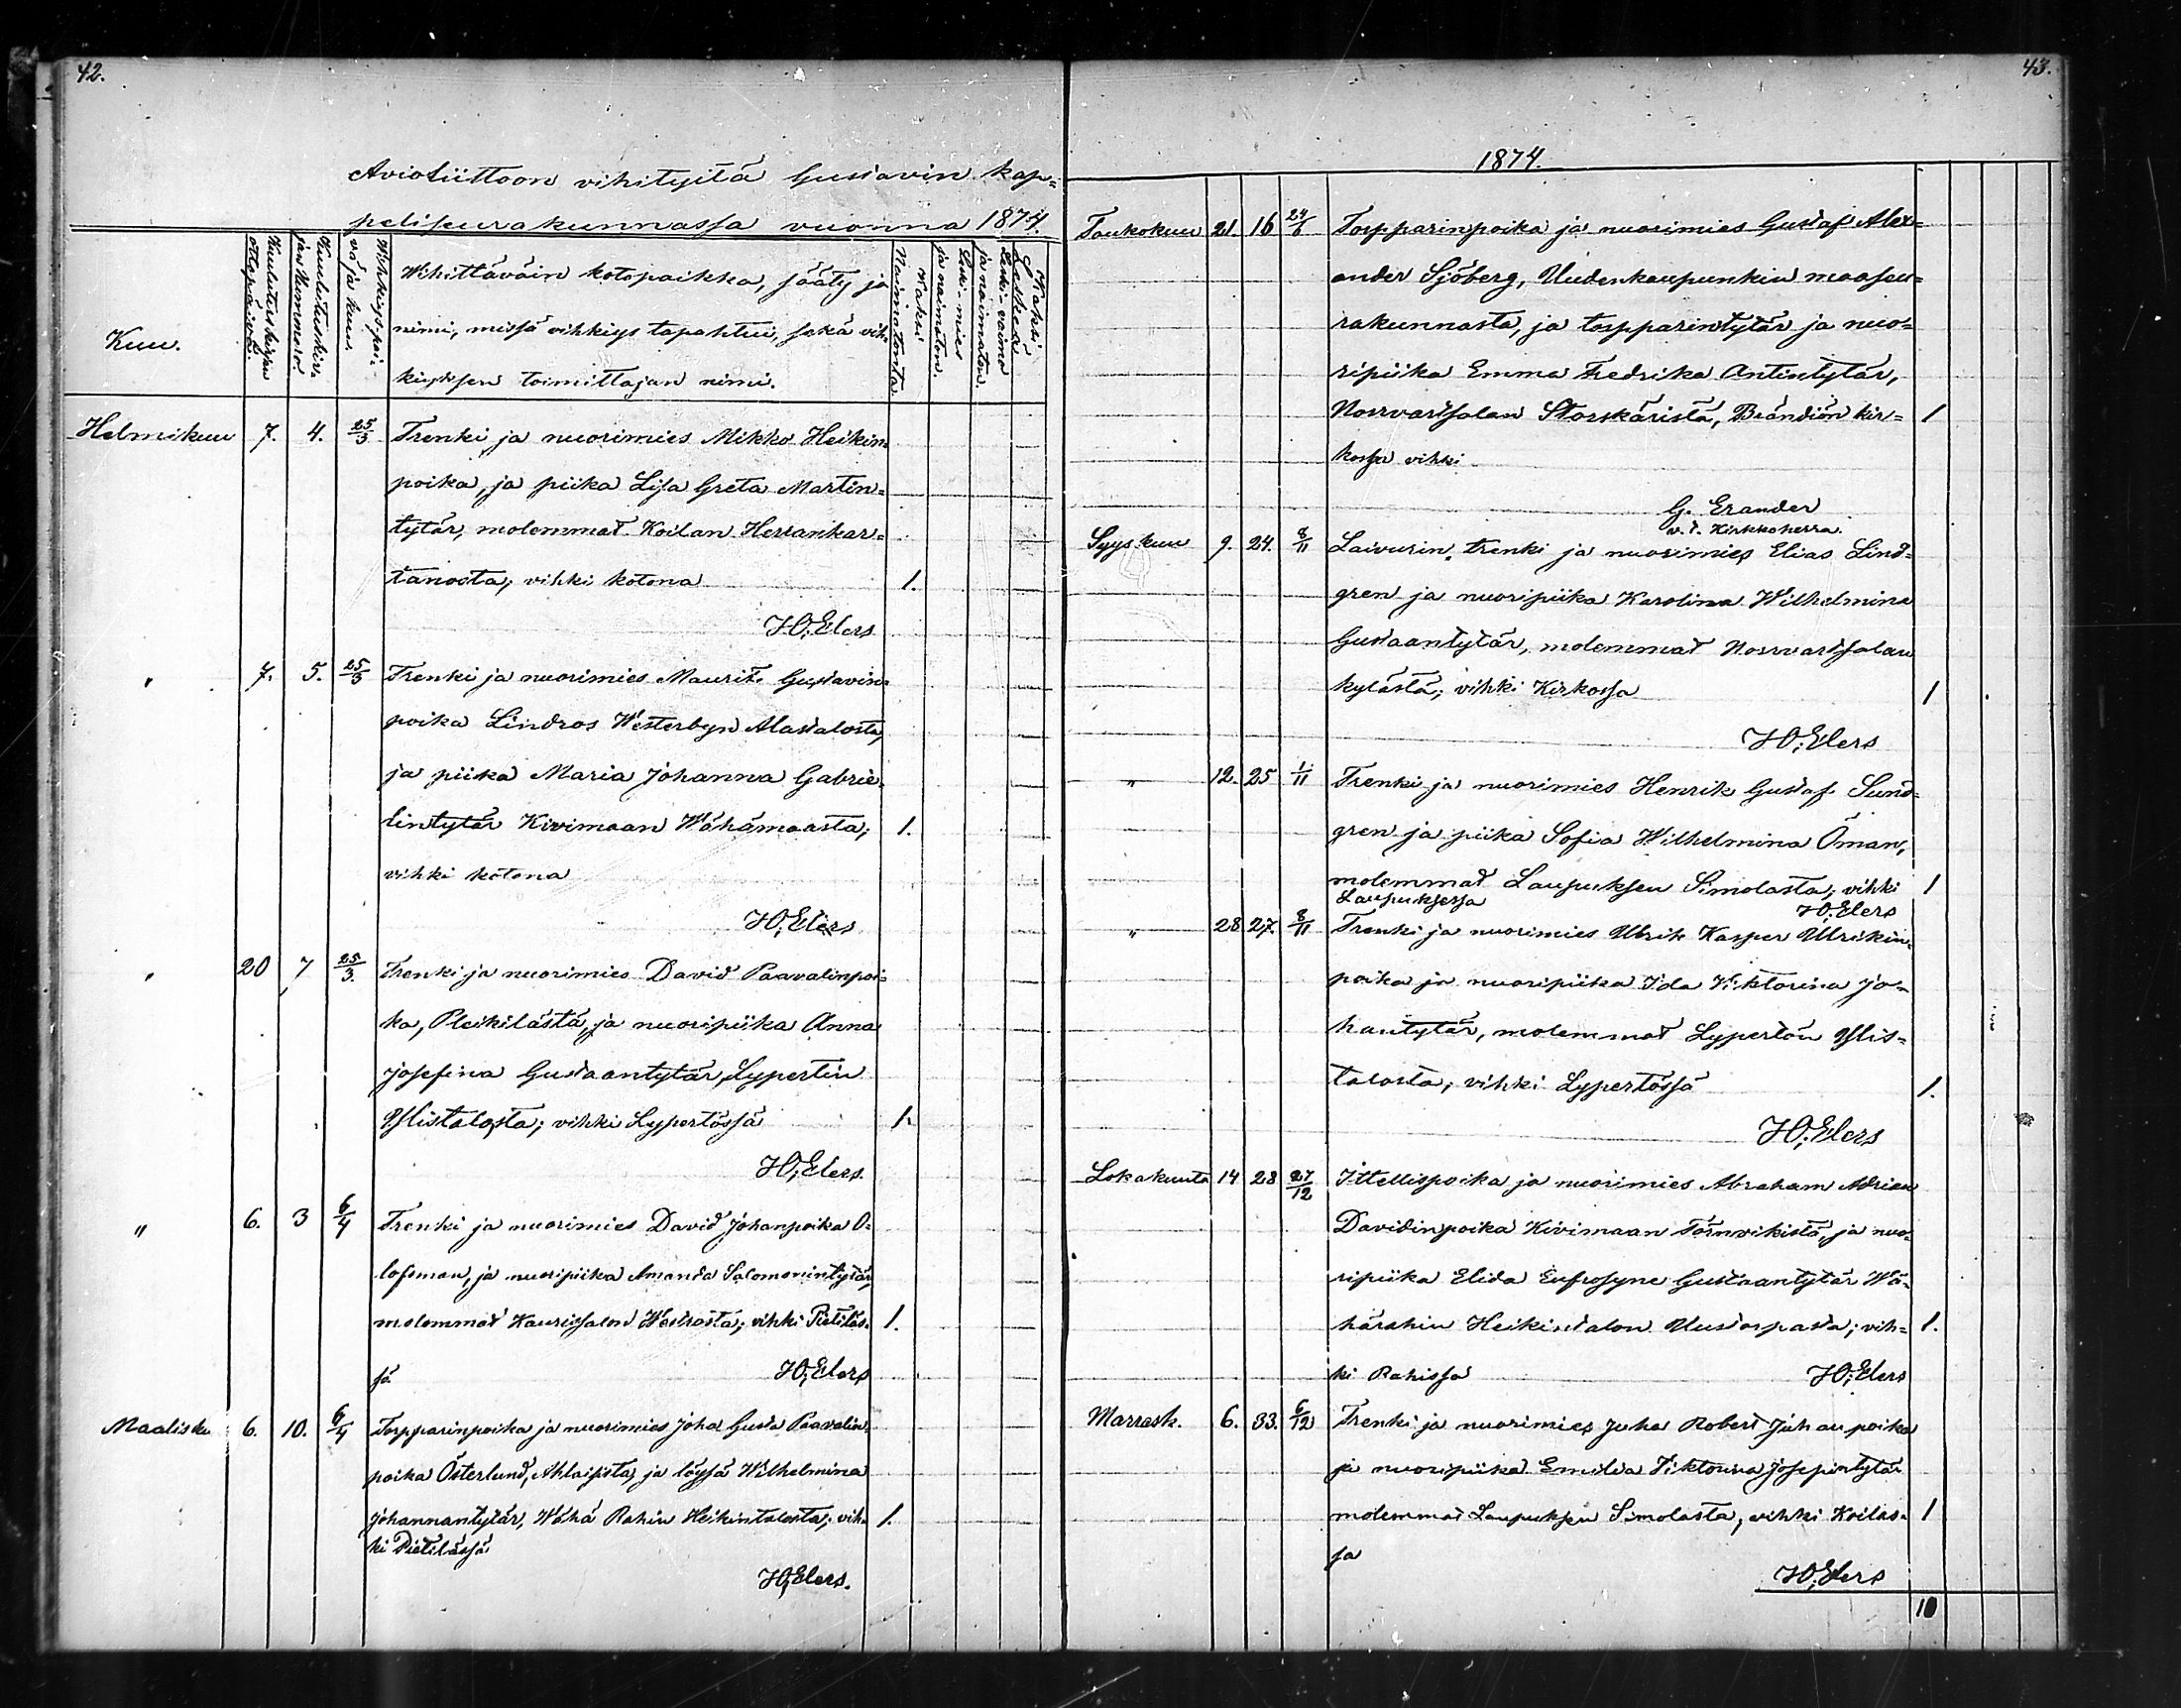 42.
Avioliittoon vihityitä Gustavin kap=
peliseurakunnassa vuonna 1874.
Kuu.
Kuulutuskirjan
ottopäivä.
Kuulutuskir-
jan Nummero.
Vihkiys-päi-
vä ja kuu.
Wihittäväin kotopaikka, sääty ja
nimi, missä vihkiys tapahtui, sekä vih-
kiyksen toimittajan nimi.
Kaksi
Naimatonta.
Leski-mies
ja naimaton.
Leski-vaimo
ja naimaton.
Kaksi
Leskeä
Helmikuu 7. 4. 25/3 Trenki ja nuorimies Mikko Heikin-
poika, ja piika Lisa Greta Martin-
tytär, molemmat Koilan Herrankar-
tanosta; vihki kotona 1.
H. Elers
" 7. 5. 25/3 Trenki ja nuorimies Maurits Gustavin-
poika Lindros Westerbyn Alastalosta,
ja piika Maria Johanna Gabrie-
lintytär Kivimaan Wähämaasta; 1.
vihki kotona
H. Elers
" 20 7 25/3. Trenki ja nuorimies David Paavalinpoi-
ka, Pleikilästä, ja nuoripiika Anna
Josefina Gustaantytär, Lypertin
Ylistalosta; vihki Lypertössä 1.
H. Elers.
" 6. 3 6/4 Trenki ja nuorimies David Johanpoika O-
lofsman, ja nuoripiika Amanda Salomonintytär,
molemmat Kaurissalon Westrasta; vihki Pietiläs- 1.
sä H. Elers
Maalisku 6. 10. 6/4 Torpparinpoika ja nuorimies Joha Gusta Paavalin-
poika Österlund, Ahlaisista, ja löysä Wilhelmina
Johannantytär, Wähä Rahin Heikintalosta; vih- 1.
ki Pietilässä
H. Elers.
43.
1874.
Toukokuu 21. 16 24/6 Torpparinpoika ja nuorimies Gustaf Alex-
ander Sjöberg, Uudenkaupunkin maaseu-
rakunnasta, ja torpparintytär ja nuo-
ripiika Emma Fredrika Antintytär,
Norrvartsalan Storskäristä, Brändiön kir- 1
kossa vihki
G. Erander
v.t. Kirkkoherra.
Syyskuu 9. 24. 8/11 Laivurin trenki ja nuorimies Elias Lind-
gren ja nuoripiika Karolina Wilhelmina
Gustaantytär, molemmat Norrvartsalan
kylästä; vihki Kirkossa 1
H. Elers
" 12. 25 1/11 Trenki ja nuorimies Henrik Gustaf Sund-
gren ja piika Sofia Wilhelmina Öman,
molemmat Laupuksen Simolasta; vihki 1
Laupuksessa H. Elers
" 28 27. 8/11 Trenki ja nuorimies Ulrik Kasper Ulrikin-
poika ja nuoripiika Ida Viktorina Jo-
hantytär, molemmat Lypertön Ylis-
talosta; vihki Lypertössä 1.
H. Elers
Lokakuuta 14 28 27/12 Ittellispoika ja nuorimies Abraham Adrian
Davidinpoika Kivimaan Törnvikistä, ja nuo-
ripiika Elida Eufrosyne Gustaantytär Wä-
härahin Heikintalon Uustorpasta; vih- 1.
ki Rahissa H. Elers
Marrask. 6. 33. 6/12 Trenki ja nuorimies Juha Robert Juhanpoika
ja nuoripiika Emilia Viktorina Josepintytär
molemmat Laupuksen Simolasta, vihki Koilas- 1
sa
H. Elers
10